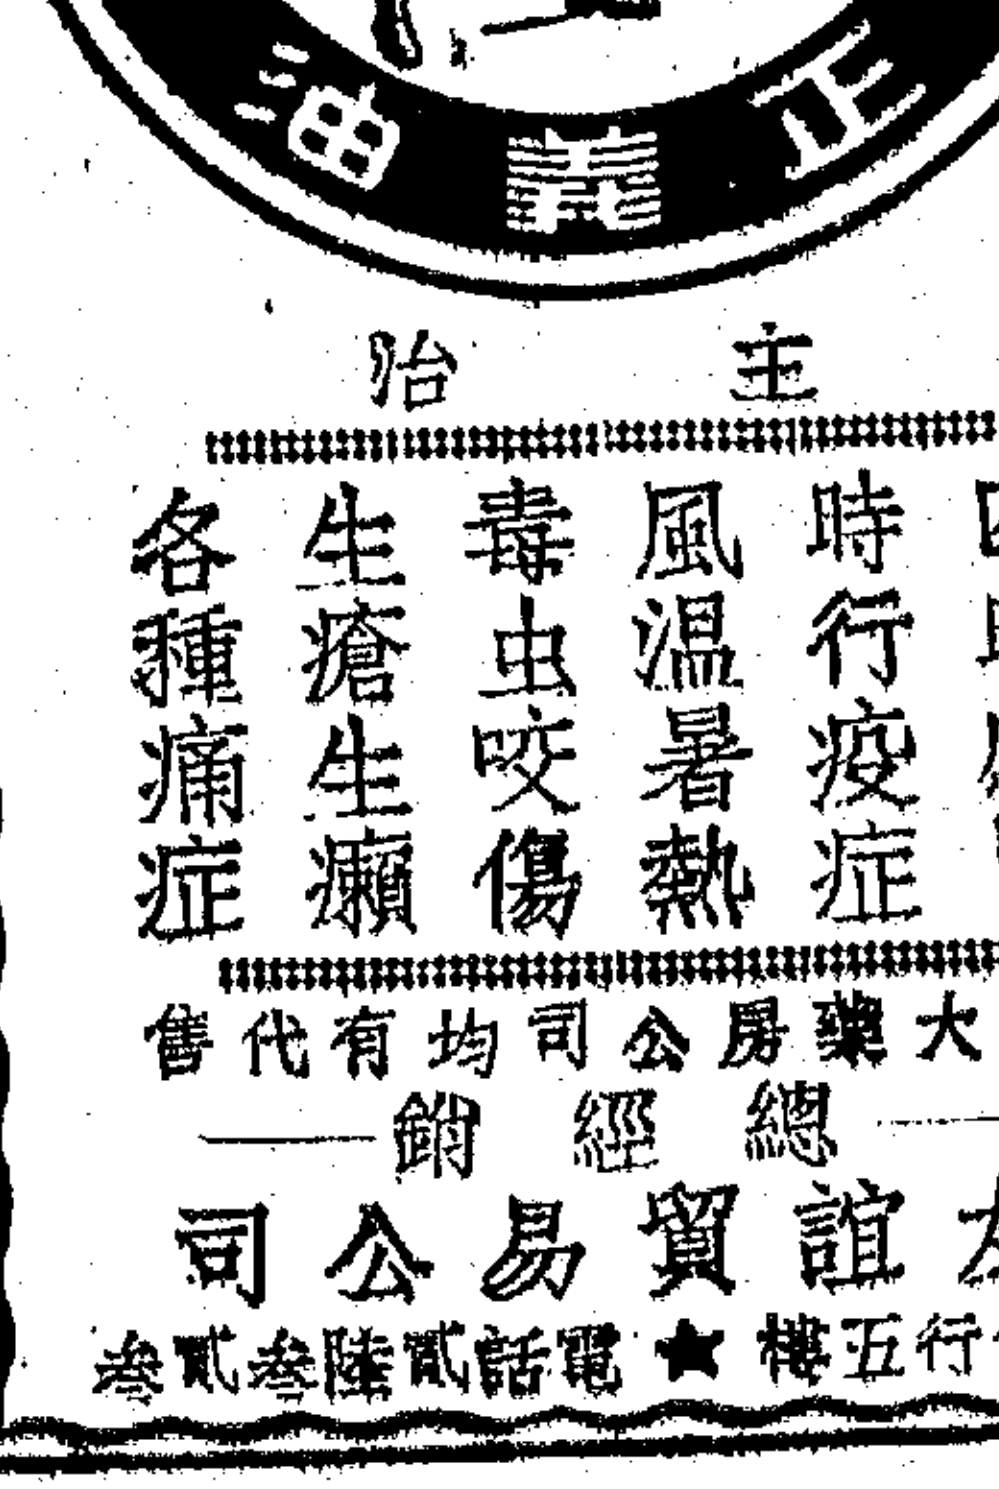 正義油
主治
時行疫症
風温暑熱
毒虫咬傷
生瘡生癩
各種痛症
大藥房公司均有代售
總經銷
誼貿易公司
行五樓★電話貳陸叁貳叁